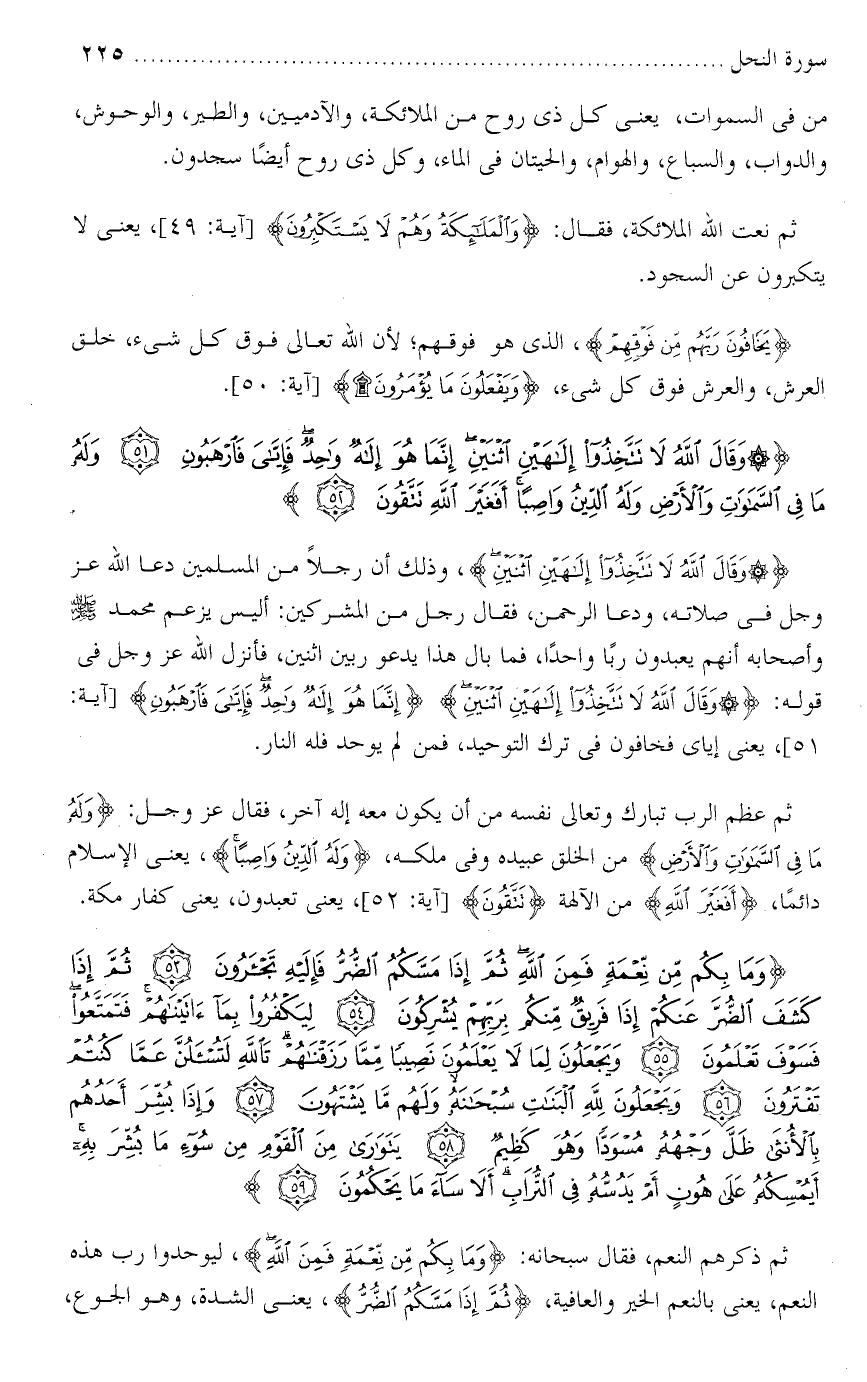 سورة النحل ........................................................................ ٢٢٥
من فى السموات، يعنى كل ذى روح من الملائكة، والآدميين، والطير، والوحوش،
والدواب، والسباع، والهوام، والحيتان فى الماء، وكل ذى روح أيضًا سجدون.
ثم نعت الله الملائكة، فقال: ﴿وَٱلْمَلَـٰٓئِكَةُ وَهُمْ لَا يَسْتَكْبِرُونَ﴾ [آية: ٤٩]، يعنى لا
يتكبرون عن السجود.
﴿يَخَافُونَ رَبَّهُم مِّن فَوْقِهِمْ﴾، الذى هو فوقهم؛ لأن الله تعالى فوق كل شىء، خلق
العرش، والعرش فوق كل شىء، ﴿وَيَفْعَلُونَ مَا يُؤْمَرُونَ ۩﴾ [آية: ٥٠].
﴿۞ وَقَالَ ٱللَّهُ لَا تَتَّخِذُوٓا۟ إِلَـٰهَيْنِ ٱثْنَيْنِ ۖ إِنَّمَا هُوَ إِلَـٰهٌ وَٰحِدٌ ۖ فَإِيَّـٰىَ فَٱرْهَبُونِ ٥١ وَلَهُۥ
مَا فِى ٱلسَّمَـٰوَٰتِ وَٱلْأَرْضِ وَلَهُ ٱلدِّينُ وَاصِبًا ۚ أَفَغَيْرَ ٱللَّهِ تَتَّقُونَ ٥٢﴾
﴿۞ وَقَالَ ٱللَّهُ لَا تَتَّخِذُوٓا۟ إِلَـٰهَيْنِ ٱثْنَيْنِ ۖ﴾، وذلك أن رجلاً من المسلمين دعا الله عز
وجل فى صلاته، ودعا الرحمن، فقال رجل من المشركين: أليس يزعم محمد ﷺ
وأصحابه أنهم يعبدون ربًا واحدًا، فما بال هذا يدعو ربين اثنين، فأنزل الله عز وجل فى
قوله: ﴿۞ وَقَالَ ٱللَّهُ لَا تَتَّخِذُوٓا۟ إِلَـٰهَيْنِ ٱثْنَيْنِ ۖ﴾ ﴿إِنَّمَا هُوَ إِلَـٰهٌ وَٰحِدٌ ۖ فَإِيَّـٰىَ فَٱرْهَبُونِ﴾ [آية:
٥١]، يعنى إياى فخافون فى ترك التوحيد، فمن لم يوحد فله النار.
ثم عظم الرب تبارك وتعالى نفسه من أن يكون معه إله آخر، فقال عز وجل: ﴿وَلَهُۥ
مَا فِى ٱلسَّمَـٰوَٰتِ وَٱلْأَرْضِ﴾ من الخلق عبيده وفى ملكه، ﴿وَلَهُ ٱلدِّينُ وَاصِبًا ۚ﴾، يعنى الإسلام
دائمًا، ﴿أَفَغَيْرَ ٱللَّهِ﴾ من الآلهة ﴿تَتَّقُونَ﴾ [آية: ٥٢]، يعنى تعبدون، يعنى كفار مكة.
﴿وَمَا بِكُم مِّن نِّعْمَةٍ فَمِنَ ٱللَّهِ ۖ ثُمَّ إِذَا مَسَّكُمُ ٱلضُّرُّ فَإِلَيْهِ تَجْـَٔرُونَ ٥٣ ثُمَّ إِذَا
كَشَفَ ٱلضُّرَّ عَنكُمْ إِذَا فَرِيقٌ مِّنكُم بِرَبِّهِمْ يُشْرِكُونَ ٥٤ لِيَكْفُرُوا۟ بِمَآ ءَاتَيْنَـٰهُمْ ۚ فَتَمَتَّعُوا۟ ۖ
فَسَوْفَ تَعْلَمُونَ ٥٥ وَيَجْعَلُونَ لِمَا لَا يَعْلَمُونَ نَصِيبًا مِّمَّا رَزَقْنَـٰهُمْ ۗ تَٱللَّهِ لَتُسْـَٔلُنَّ عَمَّا كُنتُمْ
تَفْتَرُونَ ٥٦ وَيَجْعَلُونَ لِلَّهِ ٱلْبَنَـٰتِ سُبْحَـٰنَهُۥ ۙ وَلَهُم مَّا يَشْتَهُونَ ٥٧ وَإِذَا بُشِّرَ أَحَدُهُم
بِٱلْأُنثَىٰ ظَلَّ وَجْهُهُۥ مُسْوَدًّا وَهُوَ كَظِيمٌ ٥٨ يَتَوَٰرَىٰ مِنَ ٱلْقَوْمِ مِن سُوٓءِ مَا بُشِّرَ بِهِۦٓ ۚ
أَيُمْسِكُهُۥ عَلَىٰ هُونٍ أَمْ يَدُسُّهُۥ فِى ٱلتُّرَابِ ۗ أَلَا سَآءَ مَا يَحْكُمُونَ ٥٩﴾
ثم ذكرهم النعم، فقال سبحانه: ﴿وَمَا بِكُم مِّن نِّعْمَةٍ فَمِنَ ٱللَّهِ ۖ﴾، ليوحدوا رب هذه
النعم، يعنى بالنعم الخير والعافية، ﴿ثُمَّ إِذَا مَسَّكُمُ ٱلضُّرُّ﴾، يعنى الشدة، وهو الجوع،